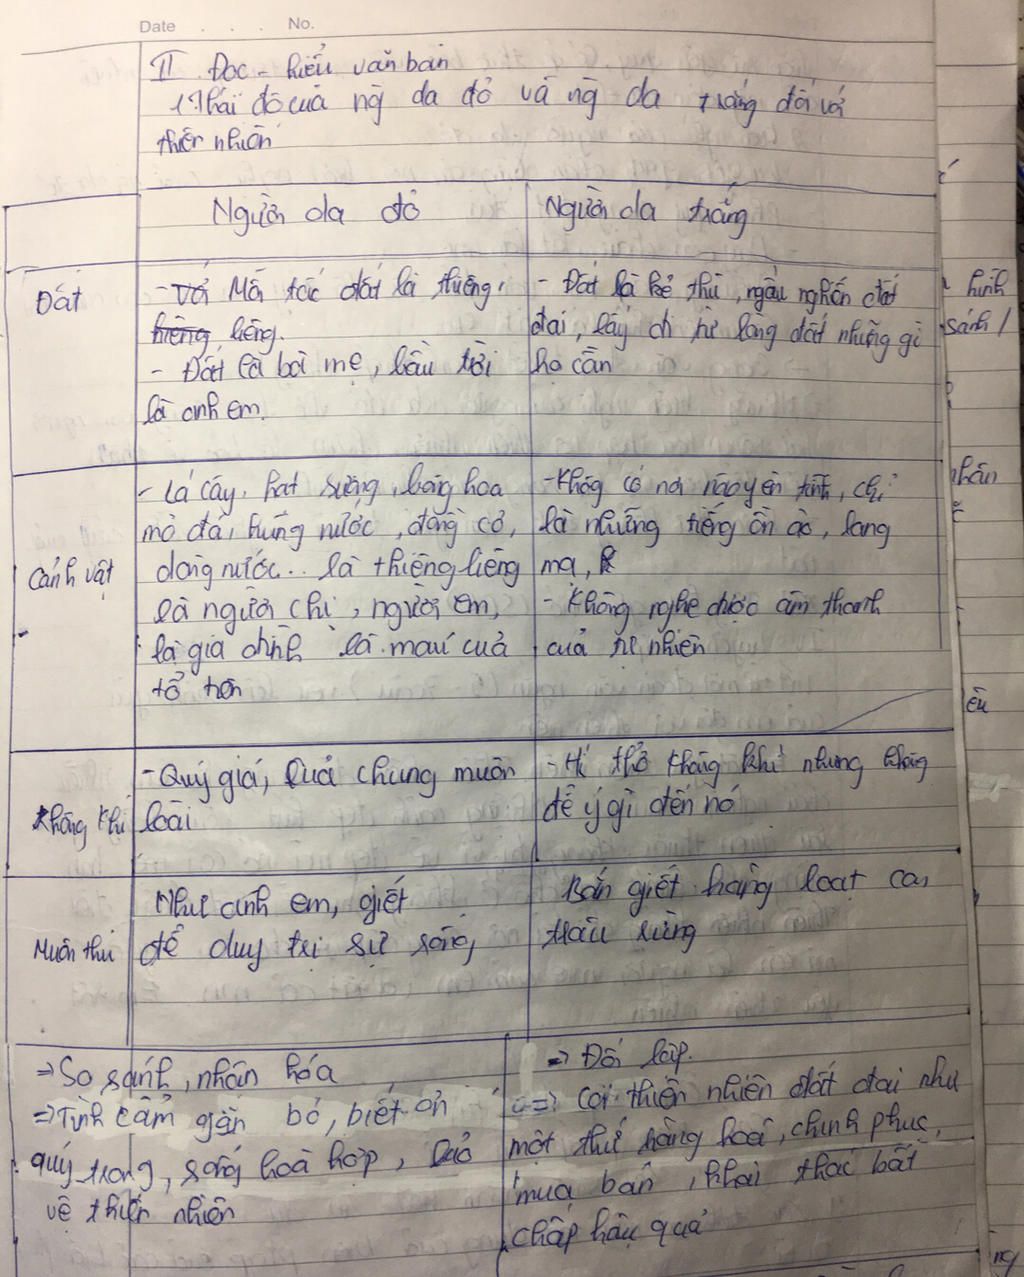 Date . . . No.
II. Đọc - hiểu văn bản
1, Thái độ của ng da đỏ và ng da trắng đối với
thiên nhiên
Người da đỏ
Người da trắng
Đất
- Với Mỗi tấc đất là thiêng,
hiêng, liêng.
- Đất là bà mẹ, bầu trời
là anh em.
- Đất là kẻ thù, ngấu nghiến đất
đai, lấy đi từ lòng đất những gì
họ cần
Cảnh vật
- Lá cây, hạt sương, bông hoa
mỏ đá, vũng nước, đồng cỏ,
dòng nước... là thiêng liêng
là người chị, người em,
là gia đình là máu của
tổ tiên
- Không có nơi nào yên tĩnh, chỉ
là những tiếng ồn ào, lăng
mạ,
- Không nghe được âm thanh
của tự nhiên
Không khí
- Quý giá, của chung muôn
loài
- Hít thở không khí nhưng không
để ý gì đến nó
Muôn thú
Như anh em, giết
để duy trì sự sống
Bắn giết hàng loạt cả
trâu rừng
=> So sánh, nhân hóa
=> Tình cảm gắn bó, biết ơn
quý trọng, sống hoà hợp, bảo
vệ thiên nhiên
=> Đối lập.
=> Coi thiên nhiên đất đai như
một thứ hàng hoá, chinh phục,
mua bán, khai thác bất
chấp hậu quả
hình
sánh
nhân